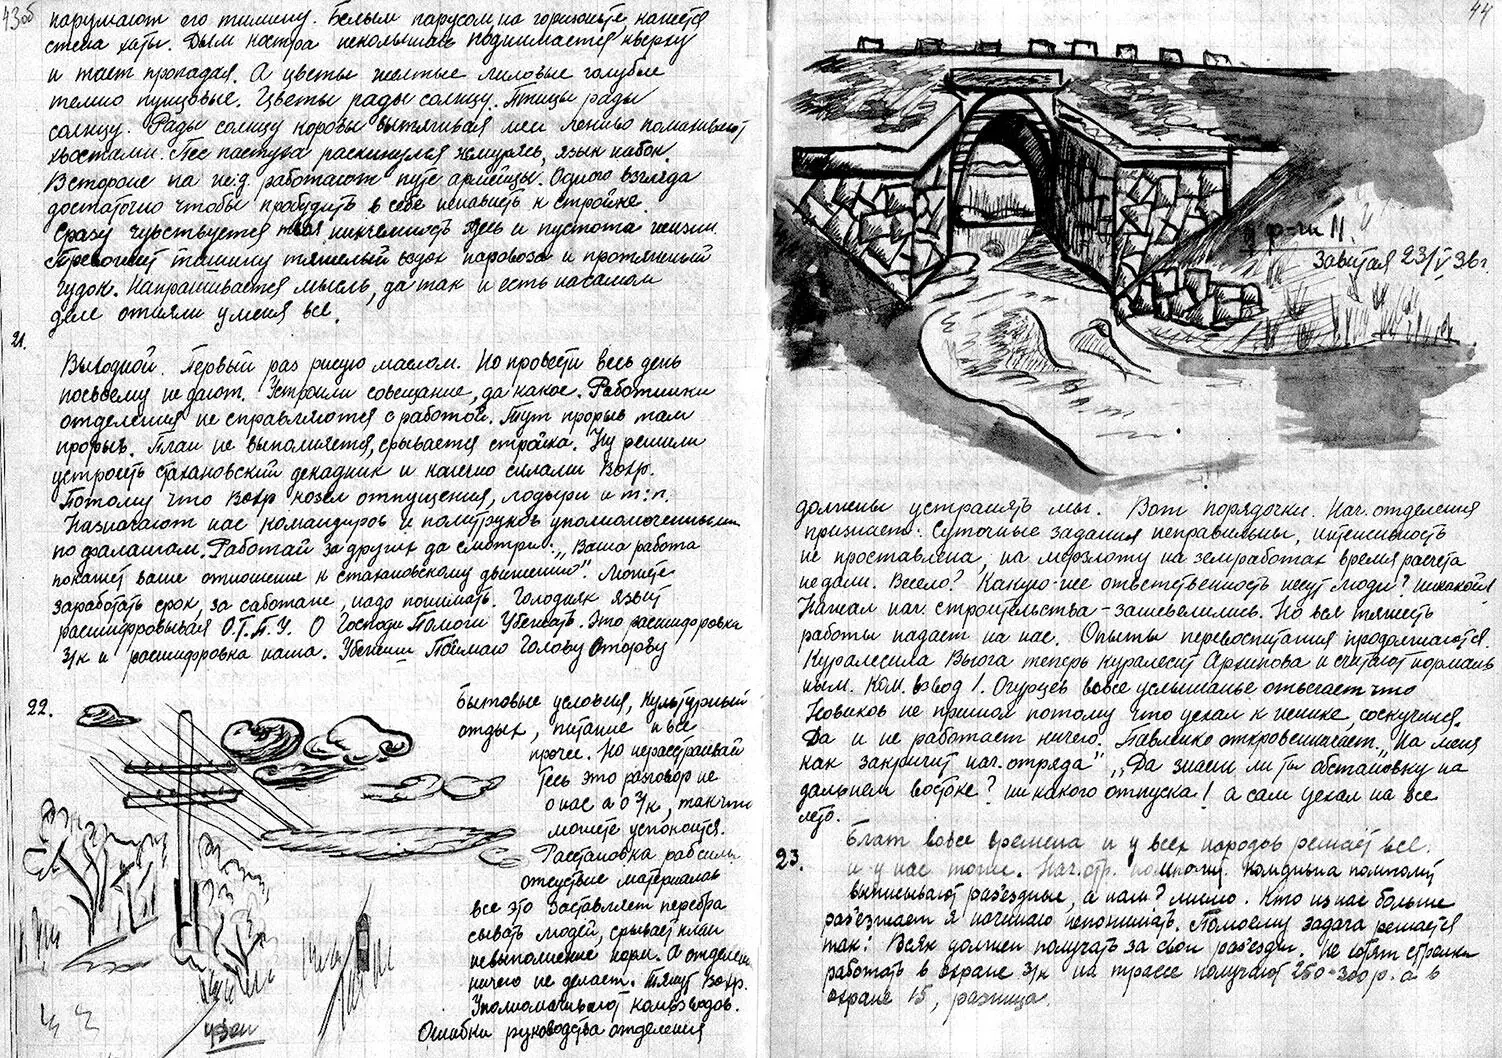 43об
нарушают его тишину. Белым парусом на горизонте кажется
стена хаты. Дым костра неколышась поднимается кверху
и тает пропадая. А цветы желтые лиловые голубые
темно пунцовые. Цветы рады солнцу. Птицы рады
солнцу. Рады солнцу коровы вытягивая шеи лениво помахивают
хвостами. Пес пастуха раскинулся жмурясь, язык набок.
В стороне на ж.д. работают путе армейцы. Одного взгляда
достаточно чтобы пробудить в себе ненависть к стройке.
Сразу чувствуется твоя никчемность здесь и пустота жизни.
Тревожит тишину тяжелый вздох паровоза и протяжный
гудок. Напрашивается мысль, да так и есть насамом
деле отняли у меня все.
21.
Выходной. Первый раз рисую маслом. Но провести весь день
посвоему не дают. Устроили совещание, да какое. Работники
отделения не справляются с работой. Тут прорыв там
прорыв. План не выполняется, срывается стройка. Ну решили
устроить стахановский декадник и конечно силами Вохр.
Потому что Вохр козел отпущения, лодыри и т.п.
Назначают нас командиров и политруков уполномоченными
по фалангам. Работай за других да смотри: „Ваша работа
покажет ваше отношение к стахановскому движению". Можете
заработать срок, за саботаж, надо понимать. Голодняк язвит
расшифровывая О.Г.П.У. О Господи Помоги Убежать. Это расшифровка
з/к и расшифровка наша. Убежишь Поймаю Голову Оторву
22.
Бытовые условия, культурный
отдых, питание и все
прочее. Но нерасстраивай
тесь это разговор не
о нас а о з/к, так что
можете успокоится.
Расстановка рабсилы
отсуствие материалов
все это заставляет перебра
сывать людей, срывает план
невыполнение норм. А отделение
ничего не делает. Тянут Вохр.
Уполномачивают комвзводов.
Ошибки руководства отделения
44
ф-ги 11.
Завитая 23/V 36г.
должны устранять мы. Вот порядочки. Нач. отделения
признает: Суточные задания неправильны, интенсивность
не проставлена, на мерзлоту на земработах время расчета
не дали. Весело? Какую-же отвественность несут люди? никакой!
Нажал нач. строительства – зашевелились. Но вся тяжесть
работы падает на нас. Опыты перевоспитания продолжаются.
Куралесила Вьюга теперь куралесит Архипова и считают нормаль
ным. Ком. взвод 1. Огурцов вовсе услышанье отвечает что
Новиков не пришол потому что уехал к жинке, соскучился.
Да и не работает ничего. Павленко откровенничает „На меня
как закричит нач. отряда" „Да знаеш ли ты обстановку на
дальнем востоке? никакого отпуска! а сам уехал на все
лето.
23.
Блат вовсе времена и у всех народов решает все.
и у нас тоже. Нач. стр. помпому. Комдивна помпому
выписывают раз'ездные, а нам? мимо. Кто из нас больше
раз'езжает я начинаю непонимать. Помоему задача решается
так: Всяк должен получать за свои раз'езды. Не хотят стрелки
работать в охране з/к на трассе получают 250-300р. а в
охране 15, разница.